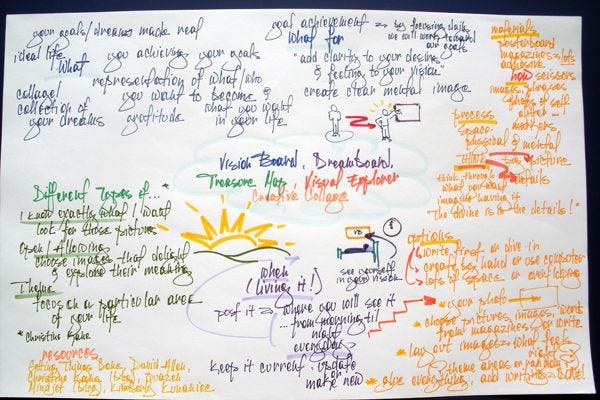 your goals/dreams made real
ideal life
what
you achieving your goals
representation of what/who
you want to become &
collage/
collection of
your dreams
gratitude
what you want
in your life
goal achievement
by focusing daily
we can work toward
our goals
what for
"add clarity to your desires
& feeling to your vision"
create clear mental image
materials
posterboard
magazines lots
adhesive
how scissors
images, phrases
photo of self
other ...
markers
process
space:
physical & mental
THINK big picture
details
think through
what you want
imagine having it
"The divine is in the details!"
Vision Board, Dreamboard,
Treasure Map, Visual Explorer
Creative Collage
Different Types of...*
I know exactly what I want
look for those pictures
open/Allowing
choose images that delight
& explore their meaning
Theme
focus on a particular area
of your life
* Christine Kane
resources
David Allen,
Christine Kane (blog),
Mindjet (blog), Kimberly
when
(living it!)
post it where you will see it
... from morning til
night
everyday
keep it current: update
or
make new
see yourself
in your vision
options
write first or dive in
crop? by hand or use computer
lots of space or overlapping
* your photo
* choose pictures, images, words
from magazines or write
* lay out images - what feels
right
theme areas or randomly
* glue everything, add writing = DONE!